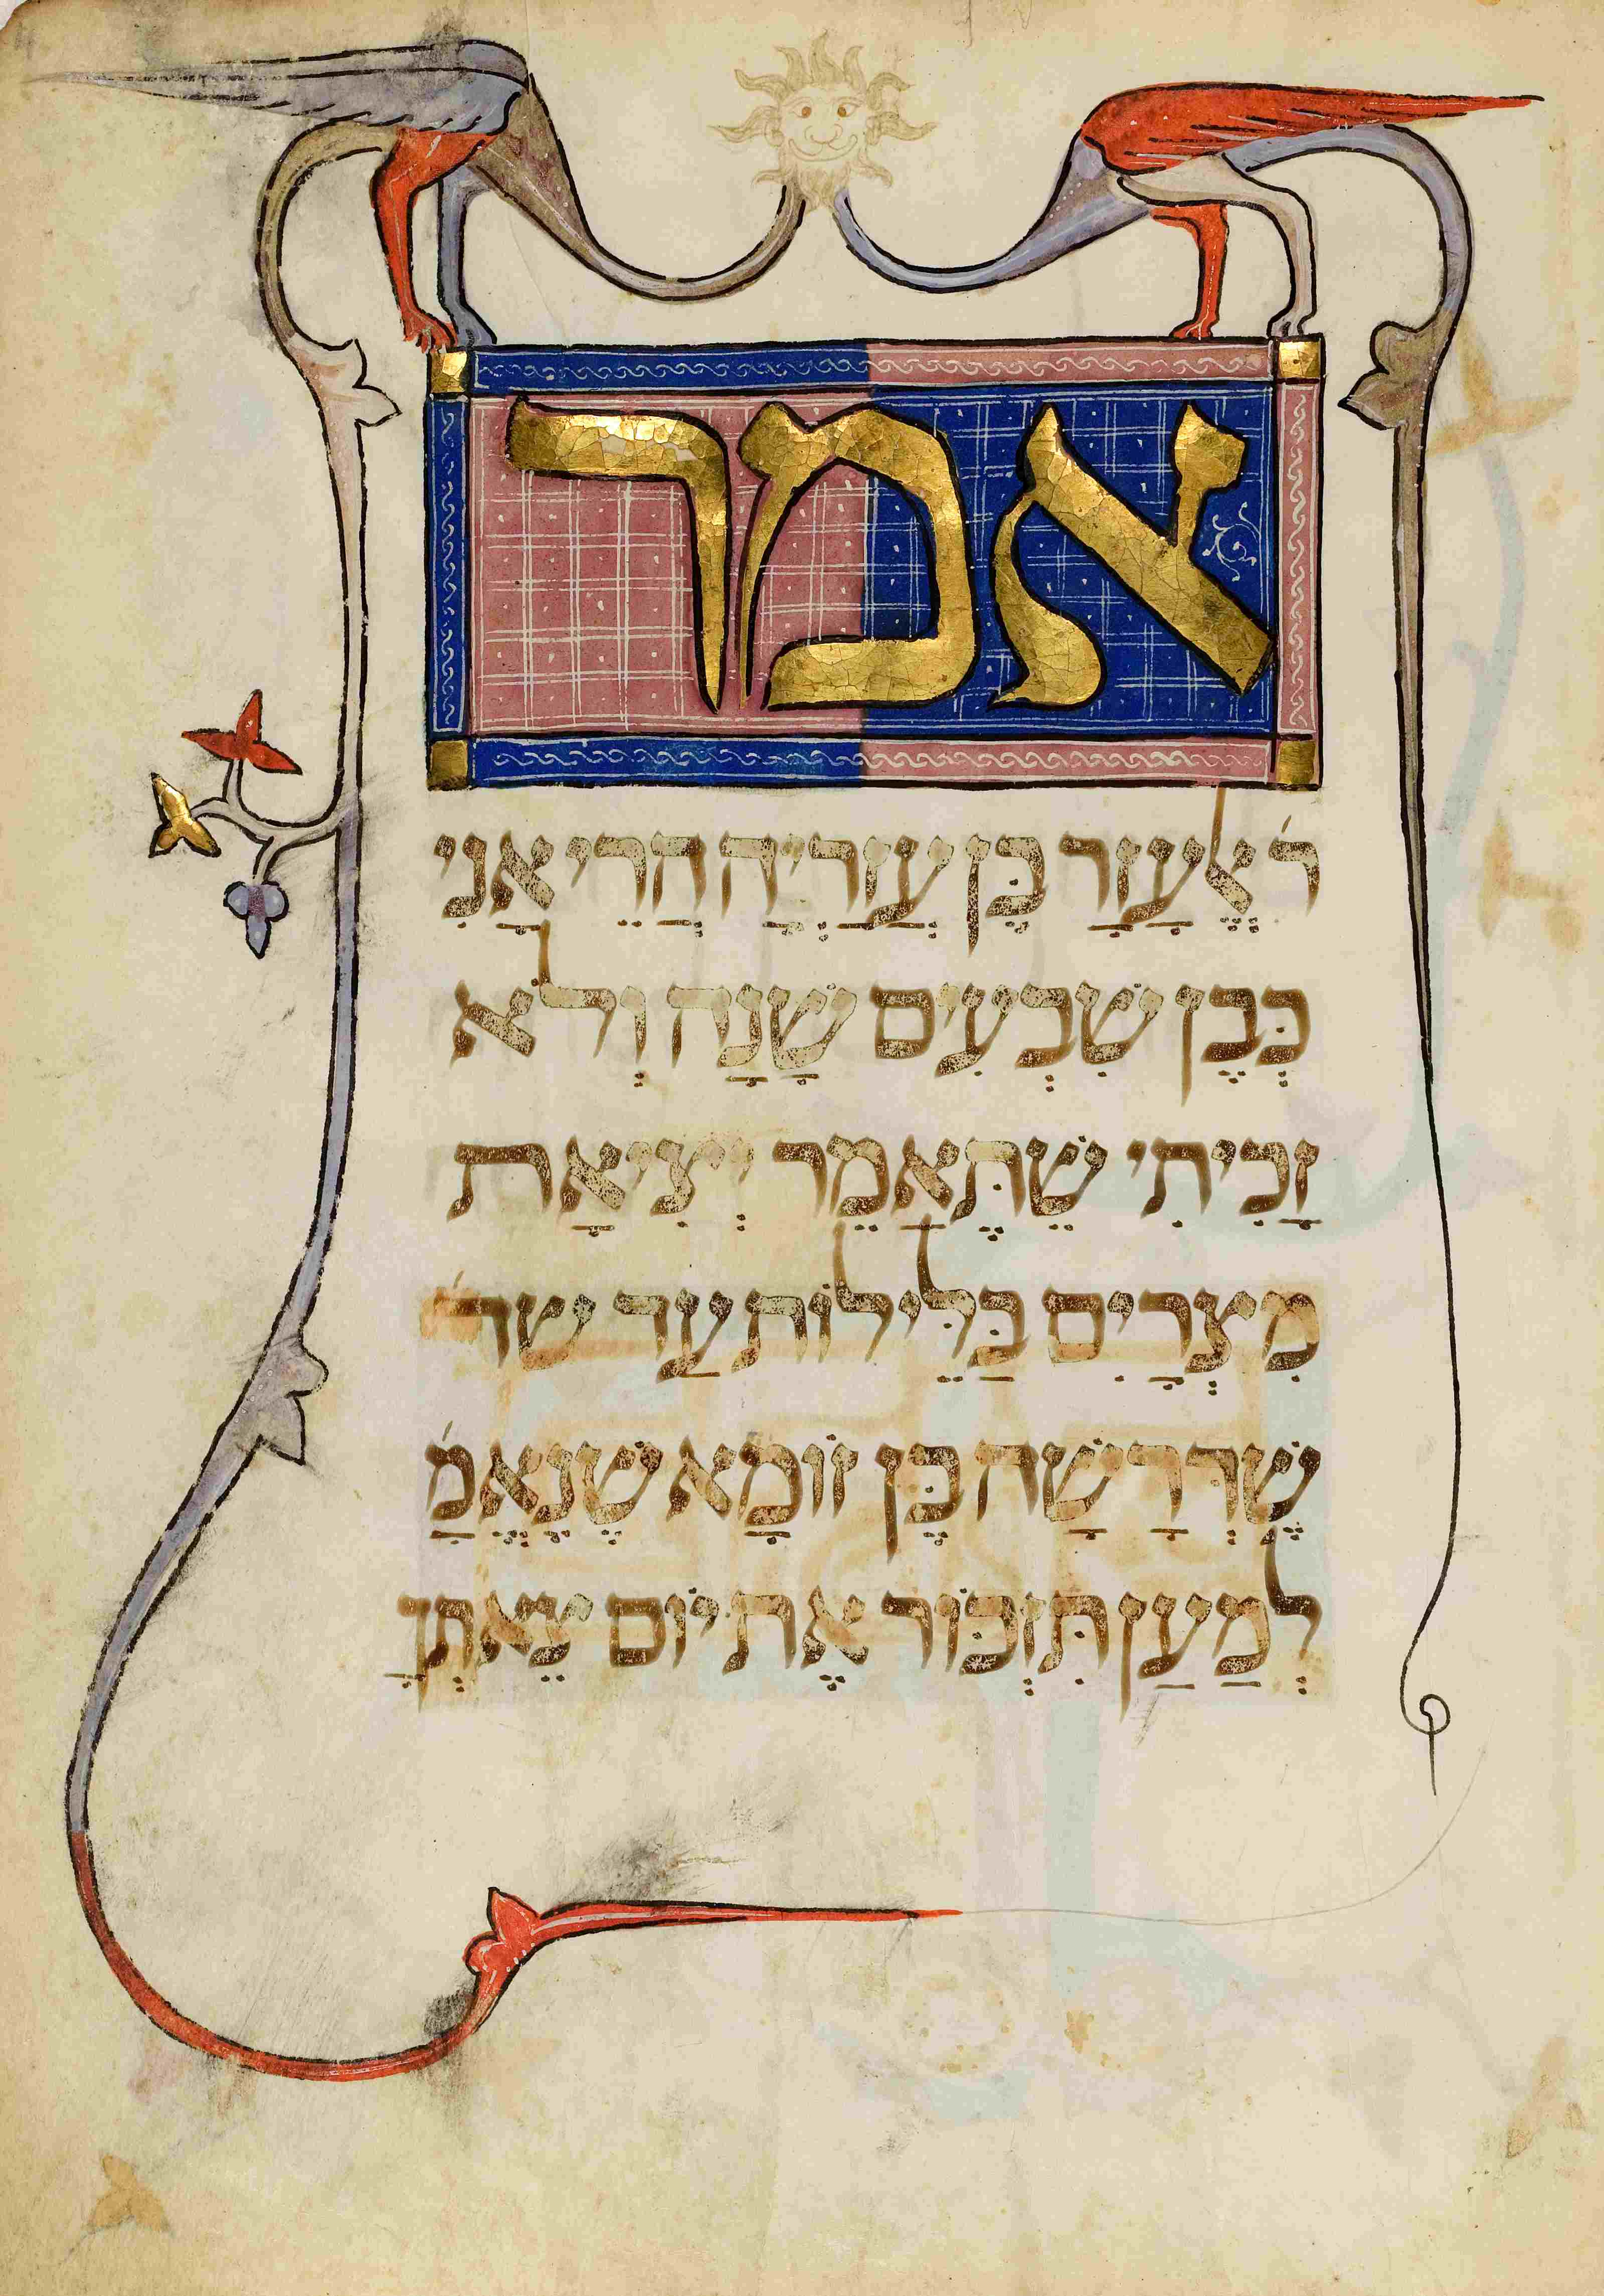 אמר
ר׳ אֶלְעָזָר בֶּן עֲזַרְיָה הֲרֵי אֲנִי
כְּבֶן שִׁבְעִים שָׁנָה וְלֹא
זָכִיתִי שֶׁתֵּאָמֵר יְצִיאַת
מִצְרָיִם בַּלֵּילוֹת עַד שד׳
שֶׁדְּרָשָׁהּ בֶּן זוֹמָא שֶׁנֶּאֱמַ׳
לְמַעַן תִּזְכּוֹר אֶת יוֹם צֵאתְךָ